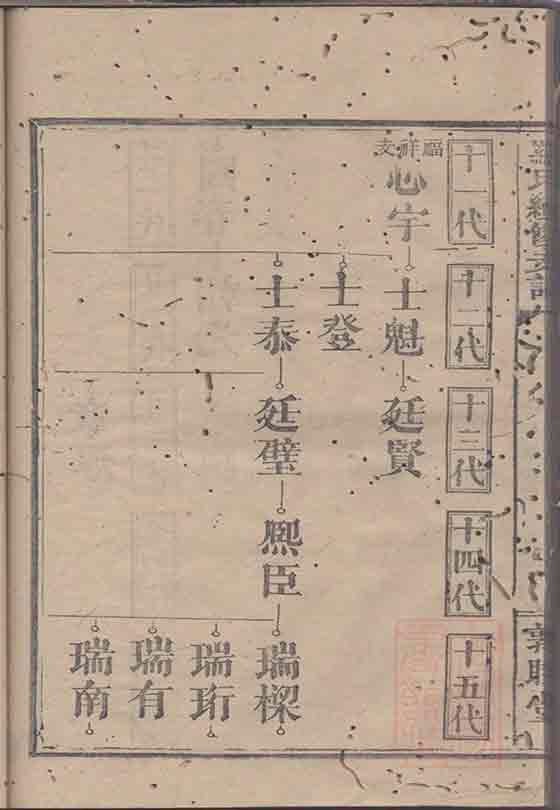 十一代
十二代
十三代
十四代
十五代
福祥支
心宇
士魁
廷賢
士登
士泰
廷璧
熙臣
瑞樑
瑞珩
瑞有
瑞南